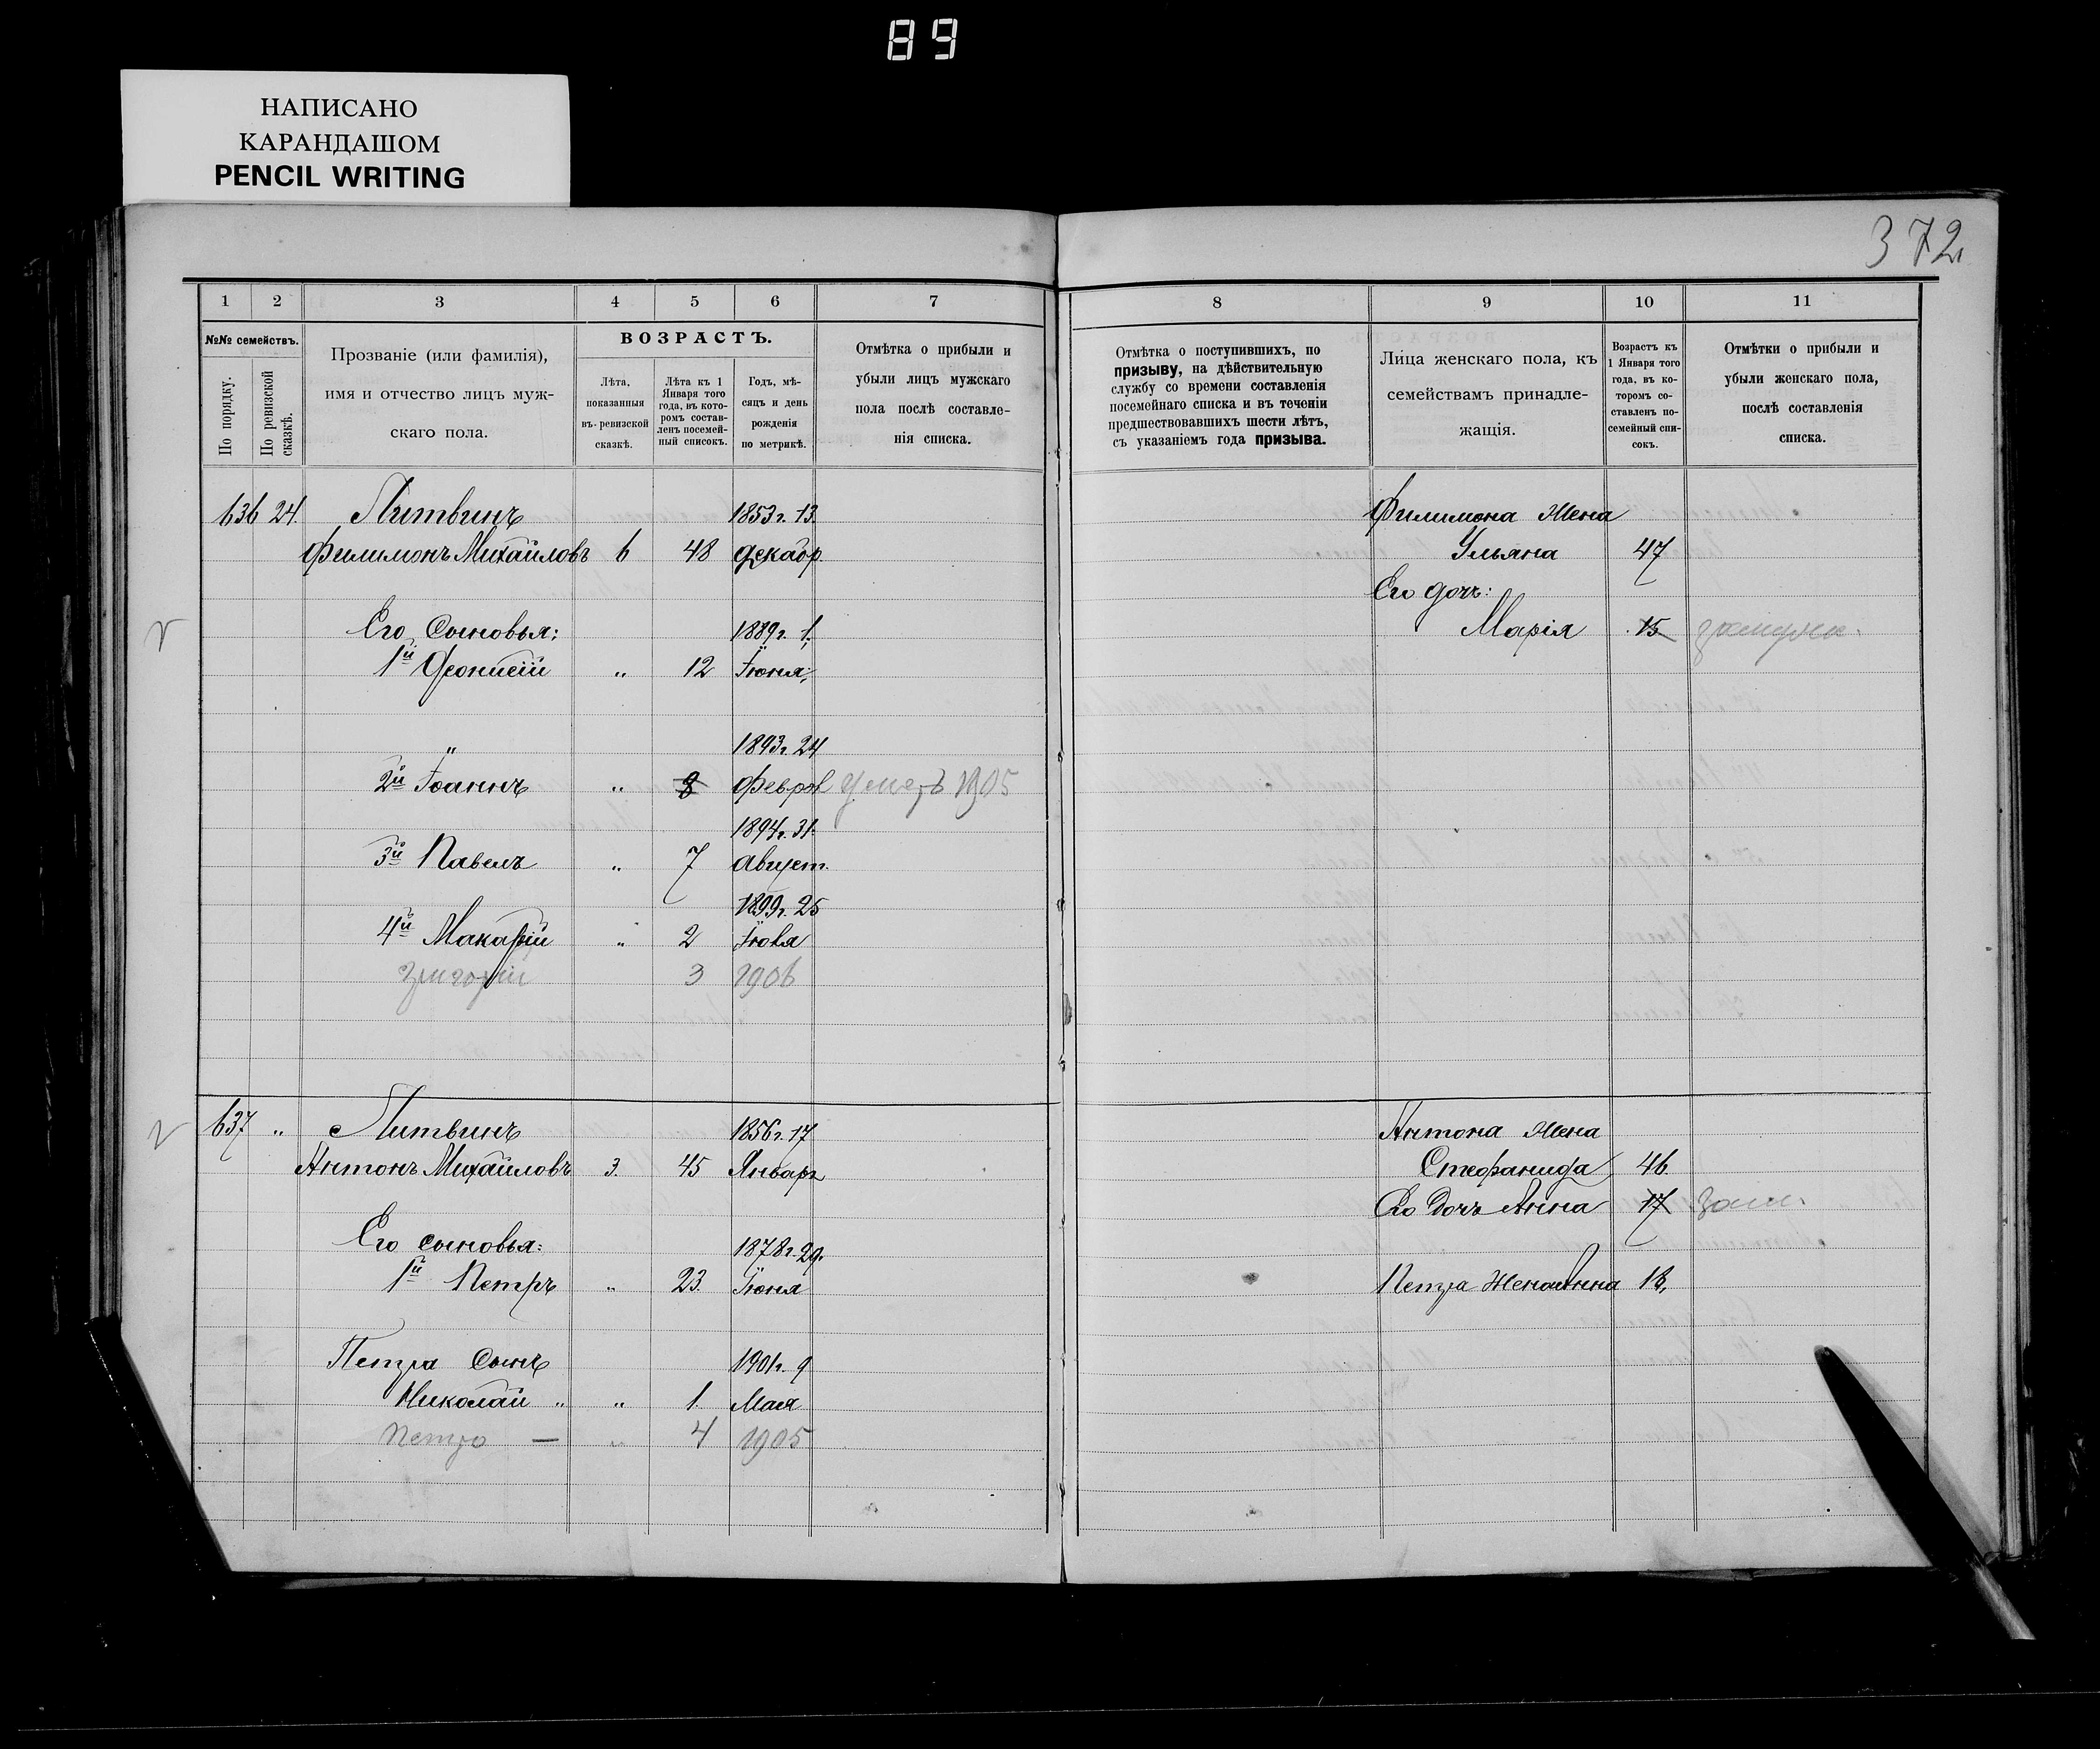 89
НАПИСАНО
КАРАНДАШОМ
PENCIL WRITING
372
1 2 3 4 5 6 7 8 9 10 11
№№ семействъ.
По порядку.
По ревизской сказкѣ.
Прозваніе (или фамилія),
имя и отчество лицъ муж-
скаго пола.
ВОЗРАСТЪ.
Лѣта,
показанныя
въ ревизской
сказкѣ.
Лѣта къ 1
Января того
года, въ кото-
ромъ состав-
ленъ посемей-
ный списокъ.
Годъ, мѣ-
сяцъ и день
рожденія
по метрикѣ.
Отмѣтка о прибыли и
убыли лицъ мужскаго
пола послѣ составле-
нія списка.
Отмѣтка о поступившихъ, по
призыву, на дѣйствительную
службу со времени составленія
посемейнаго списка и въ теченіи
предшествовавшихъ шести лѣтъ,
съ указаніемъ года призыва.
Лица женскаго пола, къ
семействамъ принадле-
жащія.
Возрастъ къ
1 Января того
года, въ ко-
торомъ со-
ставленъ по-
семейный спи-
сокъ.
Отмѣтки о прибыли и
убыли женскаго пола,
послѣ составленія
списка.
636 24. Литвинъ 1853 г. 13. Филимона жена
Филимонъ Михайловъ 6 48 Декабр. Ульяна 47
Его дочь:
Его сыновья: 1889 г. 1. Марія 15 замужем.
1й Феонисій „ 12 Іюня.
„ 1893 г. 24
2й Іоаннъ „ 8 Феврал умеръ 1905
1894 г. 31.
3й Павелъ „ 7 Август.
1899 г. 25
4й Макарій „ 2 Іюля
Григорій 3 1906
637 „ Литвинъ 1856 г. 17 Антона жена
Антонъ Михайловъ 3. 45 Январ Стефанида 46.
Его дочь Анна 17 зам.
Его сыновья: 1878 г. 29.
1й Петръ „ 23. Іюня Петра жена Анна 18,
Петра сынъ 1901 г. 9
Николай „ „ 1. Мая
Петро — „ 4 1905